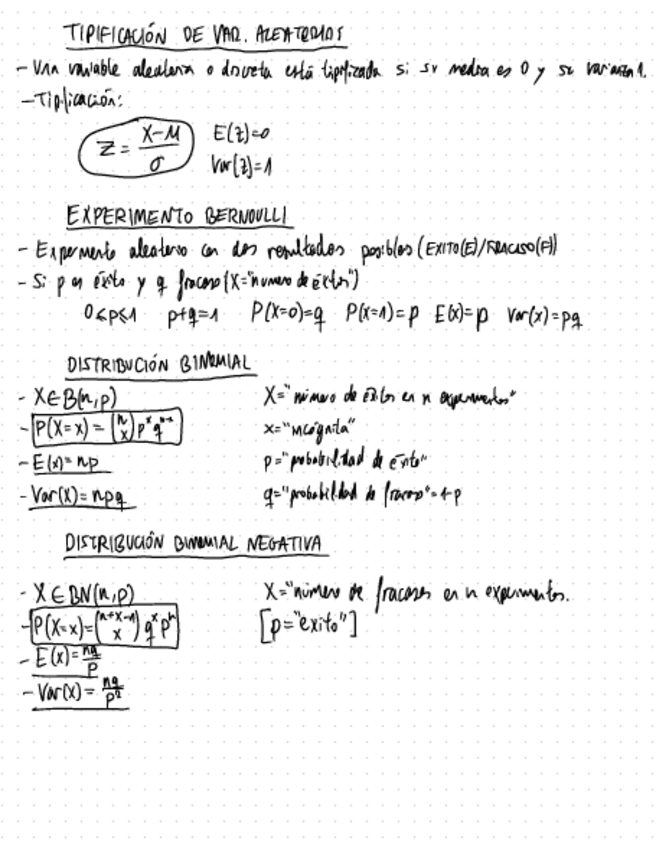 TIPIFICACIÓN DE VAR. ALEATORIAS
- Una variable aleatoria o discreta está tipificada si su media es 0 y su varianza 1.
- Tipificación:
Z = (X-M)/σ E(z)=0
Var(z)=1
EXPERIMENTO BERNOULLI
- Experimento aleatorio con dos resultados posibles (EXITO(E)/FRACASO(F))
- Si p es éxito y q fracaso (X="numero de éxitos")
0≤p≤1 p+q=1 P(X=0)=q P(X=1)=p E(x)=p Var(x)=pq
DISTRIBUCIÓN BINOMIAL
- X∈B(n,p) X="número de éxitos en n experimentos"
- P(X=x) = (n x) p^x q^(n-x) x="incógnita"
- E(x)=np p="probabilidad de éxito"
- Var(X)=npq q="probabilidad de fracaso"=1-p
DISTRIBUCIÓN BINOMIAL NEGATIVA
- X∈BN(n,p) X="número de fracasos en n experimentos.
- P(X=x)=(n+x-1 x) q^x p^n [p="exito"]
- E(x)=nq/p
- Var(x)=nq/p²